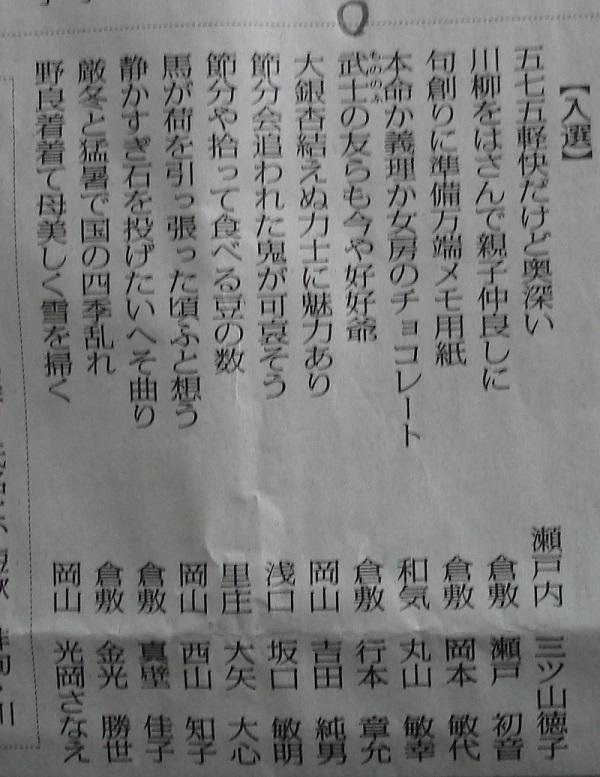 【入選】
五七五軽快だけど奥深い 瀬戸内 三ツ山徳子
川柳をはさんで親子仲良しに 倉敷 瀬戸 初音
句創りに準備万端メモ用紙 倉敷 岡本 敏代
本命か義理か女房のチョコレート 和気 丸山 敏幸
武士の友らも今や好好爺 倉敷 行本 章允
もののふ
大銀杏結えぬ力士に魅力あり 岡山 吉田 純男
節分会追われた鬼が可哀そう 浅口 坂口 敏明
節分や拾って食べる豆の数 里庄 大矢 大心
馬が荷を引っ張った頃ふと想う 岡山 西山 知子
静かすぎ石を投げたいへそ曲り 倉敷 真壁 佳子
厳冬と猛暑で国の四季乱れ 倉敷 金光 勝世
野良着着て母美しく雪を掃く 岡山 光岡さなえ